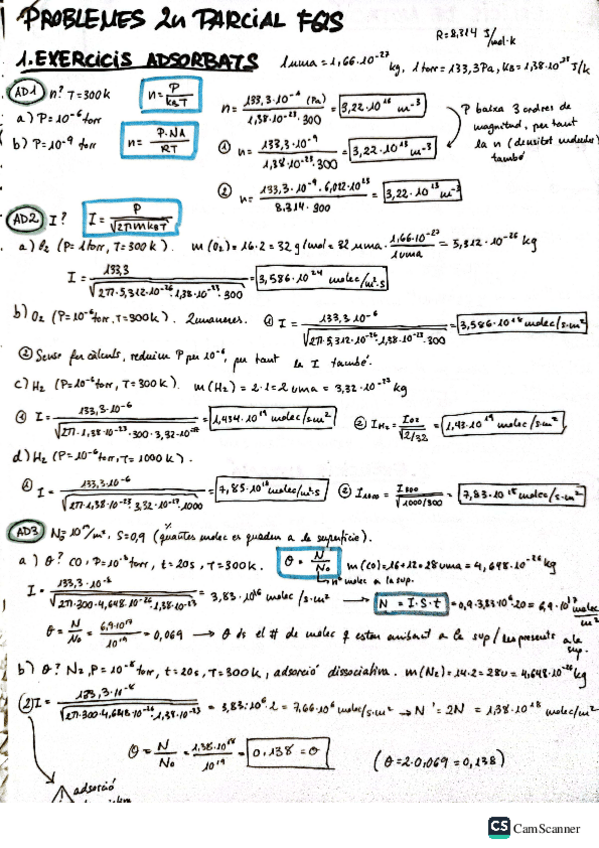 PROBLEMES 2n PARCIAL FQS
R=8,314 J/mol·k
1. EXERCICIS ADSORBATS
1uma = 1,66·10⁻²⁷ kg, 1 torr = 133,3Pa, KB = 1,38·10⁻²³ J/k
AD1 n? T=300k
n = P / kBT
a) P=10⁻⁶ torr
b) P=10⁻⁹ torr
n = P·NA / RT
n = 133,3·10⁻⁶ (Pa) / 1,38·10⁻²³·300 = 3,22·10¹⁶ m⁻³
① n = 133,3·10⁻⁹ / 1,38·10⁻²³·300 = 3,22·10¹³ m⁻³
② n = 133,3·10⁻⁹·6,022·10²³ / 8.314·300 = 3,22·10¹³ m⁻³
P baixa 3 ordres de
magnitud, per tant
la n (densitat molecules)
també
AD2 I?
I = P / √2πmKBT
a) O₂ (P=1torr, T=300k). m(O₂)=16·2=32 g/mol = 32 uma · 1,66·10⁻²⁷ / 1uma = 5,312·10⁻²⁶ kg
I = 133,3 / √2π·5,312·10⁻²⁶·1,38·10⁻²³·300 = 3,586·10²⁴ molec/m²·s
b) O₂ (P=10⁻⁶torr, T=300k). 2 maneres. ① I = 133,3·10⁻⁶ / √2π·5,312·10⁻²⁶·1,38·10⁻²³·300 = 3,586·10¹⁸ molec/s·m²
② Sense fer càlculs, reduim P per 10⁻⁶, per tant la I també.
c) H₂ (P=10⁻⁶torr, T=300k). m(H₂) = 2·1=2 uma = 3,32·10⁻²⁷ kg
① I = 133,3·10⁻⁶ / √2π·1,38·10⁻²³·300·3,32·10⁻²⁷ = 1,434·10¹⁹ molec/s·m²
② I H₂ = I O₂ / √2/32 = 1,43·10¹⁹ molec/s·m²
d) H₂ (P=10⁻⁶torr, T=1000k).
① I = 133,3·10⁻⁶ / √2π·1,38·10⁻²³·3,32·10⁻²⁷·1000 = 7,85·10¹⁸ molec/m²·s
② I₁₀₀₀ = I₃₀₀ / √1000/300 = 7,83·10¹⁸ molec/s·m²
AD3 N₀=10¹⁹/m², S=0,9 (quantes molec es queden a la superfície).
a) θ? CO, P=10⁻⁸torr, t=20s, T=300k.
θ = N / N₀
nº molec a la sup.
m(CO)=16+12=28uma = 4,648·10⁻²⁶ kg
I = 133,3·10⁻⁸ / √2π·300·4,648·10⁻²⁶·1,38·10⁻²³ = 3,83·10¹⁶ molec/s·m² → N = I·S·t = 0,9·3,83·10¹⁶·20 = 6,9·10¹⁷ molec/m²
θ = N/N₀ = 6,9·10¹⁷ / 10¹⁹ = 0,069 → θ és el # de molec q estan a la sup / a la sup.
b) θ? N₂, P=10⁻⁸torr, t=20s, T=300k, adsorció dissociativa. m(N₂)=14·2=28u = 4,648·10⁻²⁶ kg
② I = 133,3·10⁻⁸ / √2π·300·4,648·10⁻²⁶·1,38·10⁻²³ = 3,83·10¹⁶·2 = 7,66·10¹⁶ molec/s·m² → N' = 2N = 1,38·10¹⁸ molec/m²
θ = N/N₀ = 1,38·10¹⁸ / 10¹⁹ = 0,138 = θ
(θ=2·0,069=0,138)
adsorció
CS CamScanner